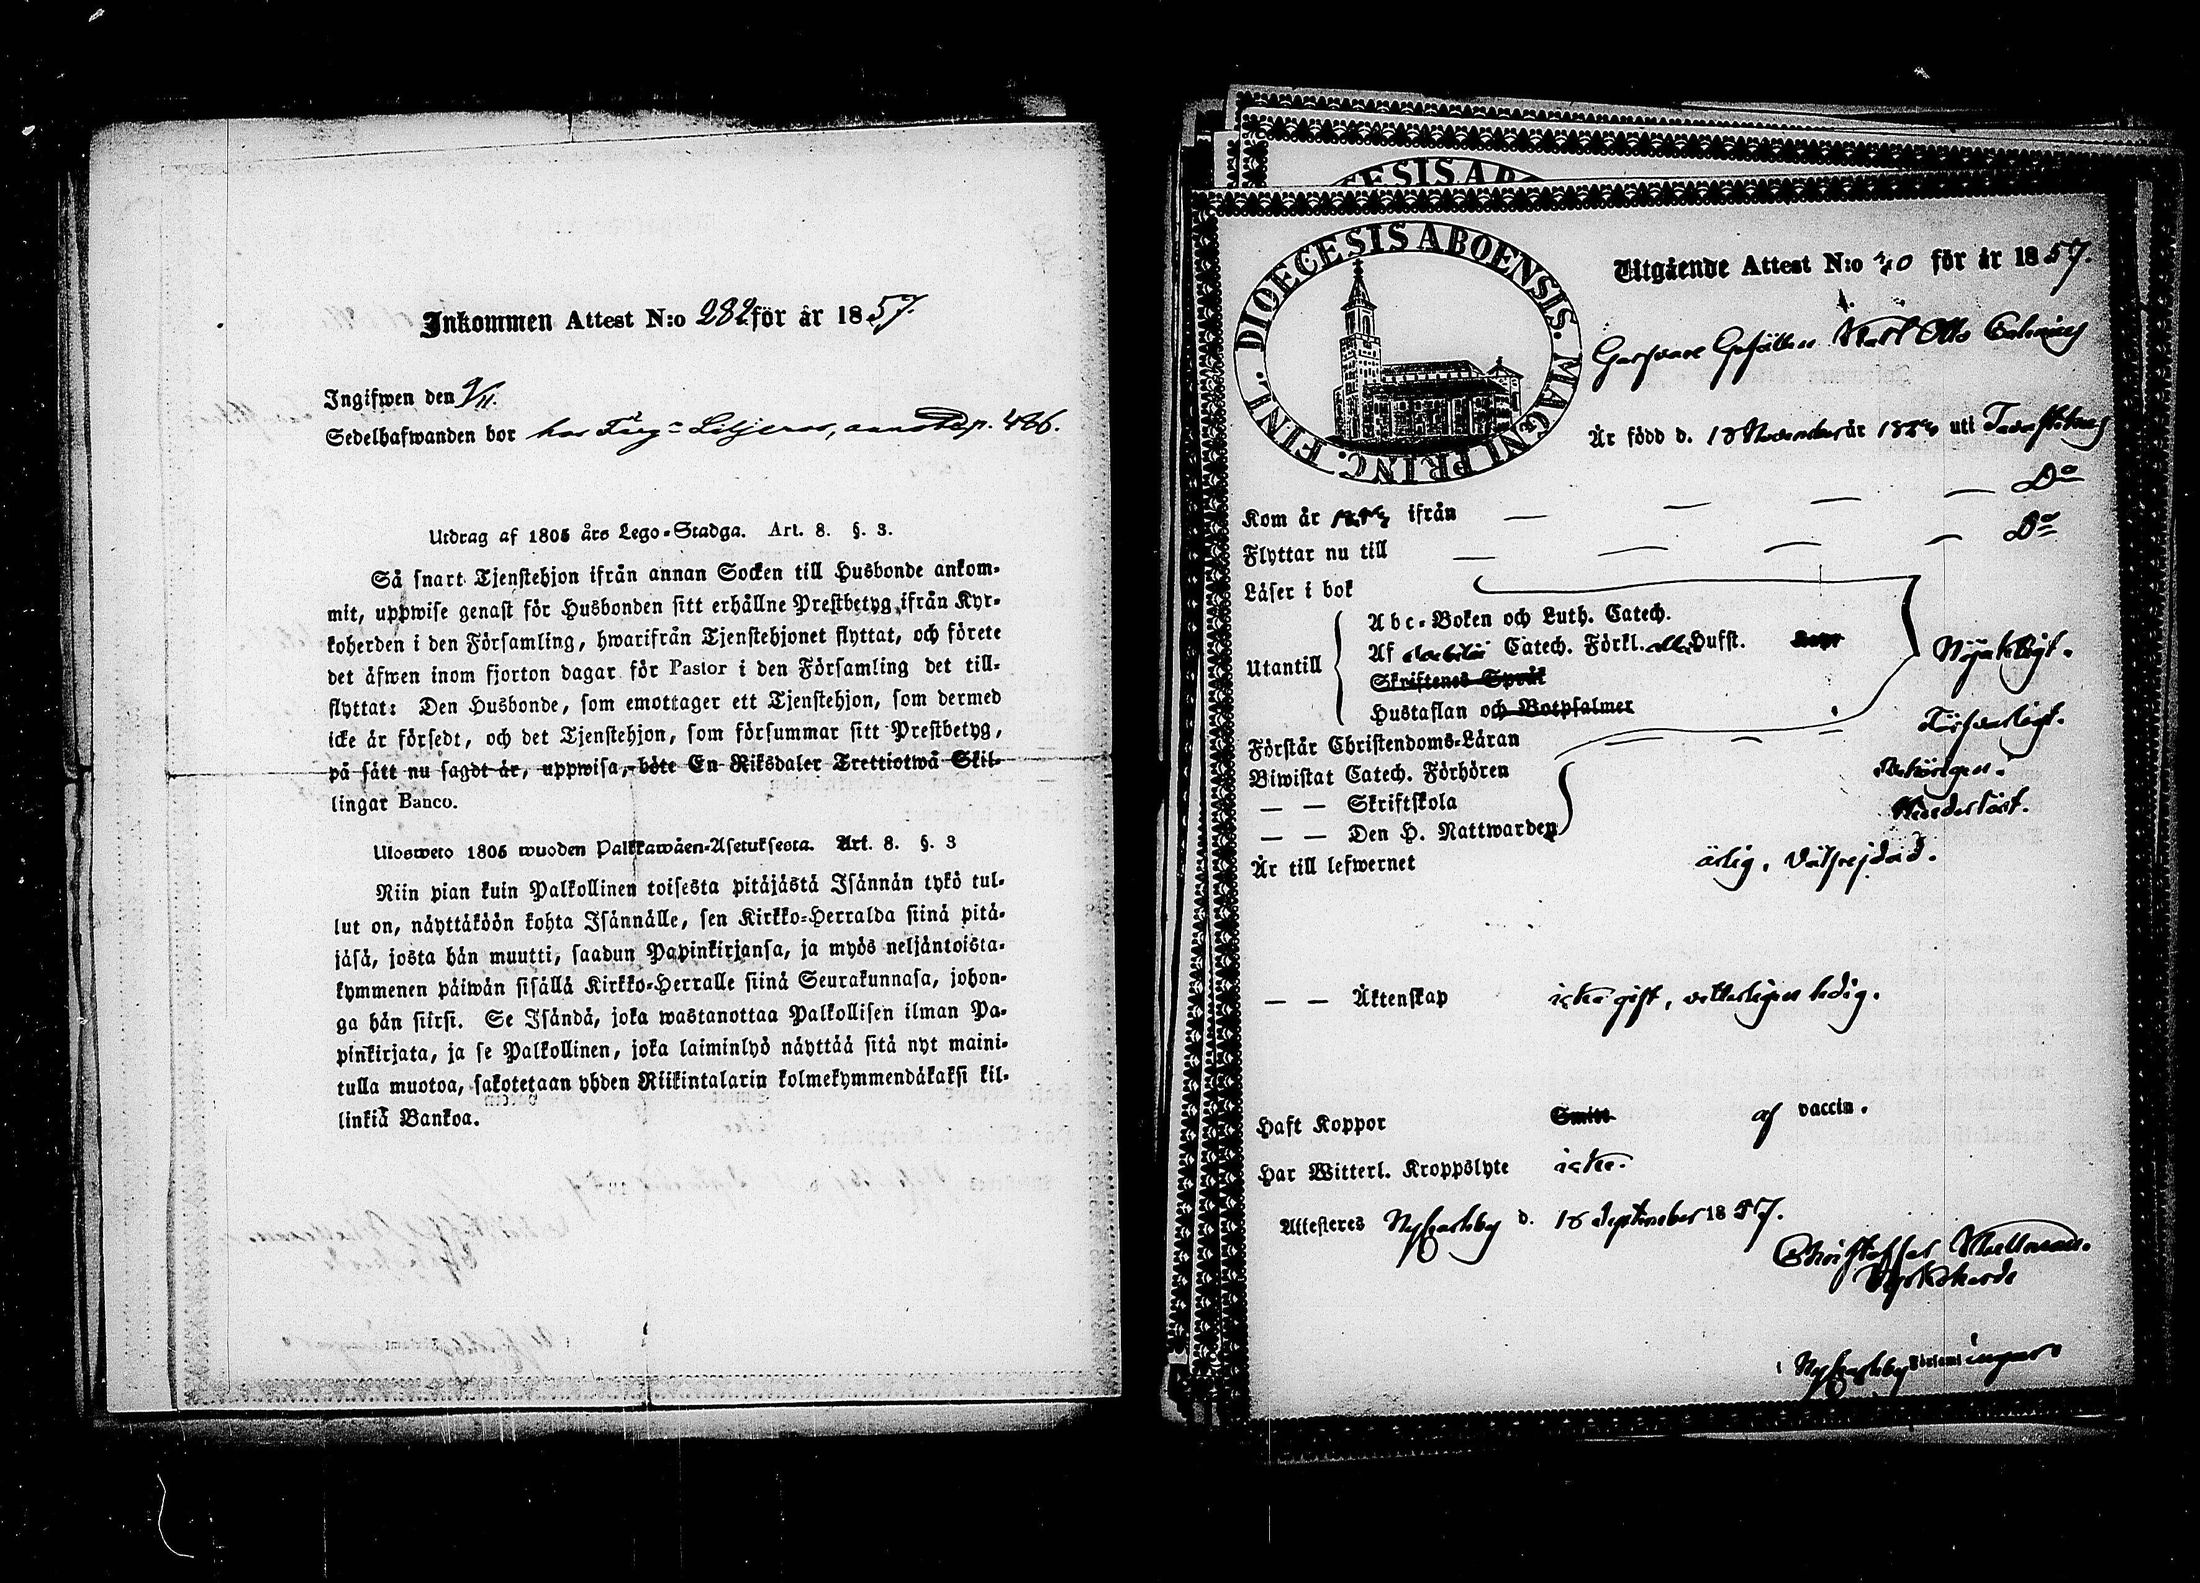 Inkommen Attest N:o 282 för år 1857.
Ingifwen den 9/11.
Sedelhafwanden bor hos Färg= Liljeros, p. 486.
Utdrag af 1805 års Lego-Stadga. Art. 8. §. 3.
Så snart Tjenstehjon ifrån annan Socken till Husbonde ankom-
mit, uppwise genast för Husbonden sitt erhållne Prestbetyg ifrån Kyr-
koherden i den Församling, hwarifrån Tjenstehjonet flyttat, och förete
det äfwen inom fjorton dagar för Pastor i den Församling det till-
flyttat: Den Husbonde, som emottager ett Tjenstehjon, som dermed
icke är försedt, och det Tjenstehjon, som försummar sitt Prestbetyg,
på sätt nu sagdt är, uppwisa, böte En Riksdaler Trettiotwå Skil-
lingar Banco.
Ulosweto 1805 wuoden Palkkawäen-Asetuksesta. Art. 8. §. 3
Niin pian kuin Palkollinen toisesta pitäjästä Isännän tykö tul-
lut on, näyttäköön kohta Isännälle, sen Kirkko-Herralda siinä pitä-
jäsä, josta hän muutti, saadun Papinkirjansa, ja myös neljäntoista-
kymmenen päiwän sisällä Kirkko-Herralle siinä Seurakunnasa, johon-
ga hän siirsi. Se Isändä, joka wastanottaa Palkollisen ilman Pa-
pinkirjata, ja se Palkollinen, joka laiminlyö näyttää sitä nyt maini-
tulla muotoa, sakotetaan yhden Riikintalarin kolmekymmendäkaksi kil-
linkiä Bankoa.
DIOECESIS ABOENSIS. MAGNI PRINC. FINL.
Utgående Attest N:o 40 för år 1857.
Garfvare Gesällen Karl Otto
Är född d. 18 November år uti Tavastehus
Kom år ifrån — — — — Do
Flyttar nu till — — — — Do
Läser i bok
Utantill
Abc-Boken och Luth. Catech.
Af Catech. Förkl. Husst.
Skriftenes Språk
Hustaflan och Botpsalmer
Nöjaktligt.
Förstår Christendoms-Läran — — — Försvarligt.
Biwistat Catech. Förhören behörigen.
— — Skriftskola
— — Den H. Nattwarden
Är till lefwernet ärlig, välfrejdad.
— — Äktenskap icke gift, vitterligen ledig.
Haft Koppor Smitt af vaccin.
Har Witterl. Kroppslyte icke.
Attesteres Nykarleby d. 18 September 1857.
Christoffer
Kyrkoherde
i Nykarleby Församlingar